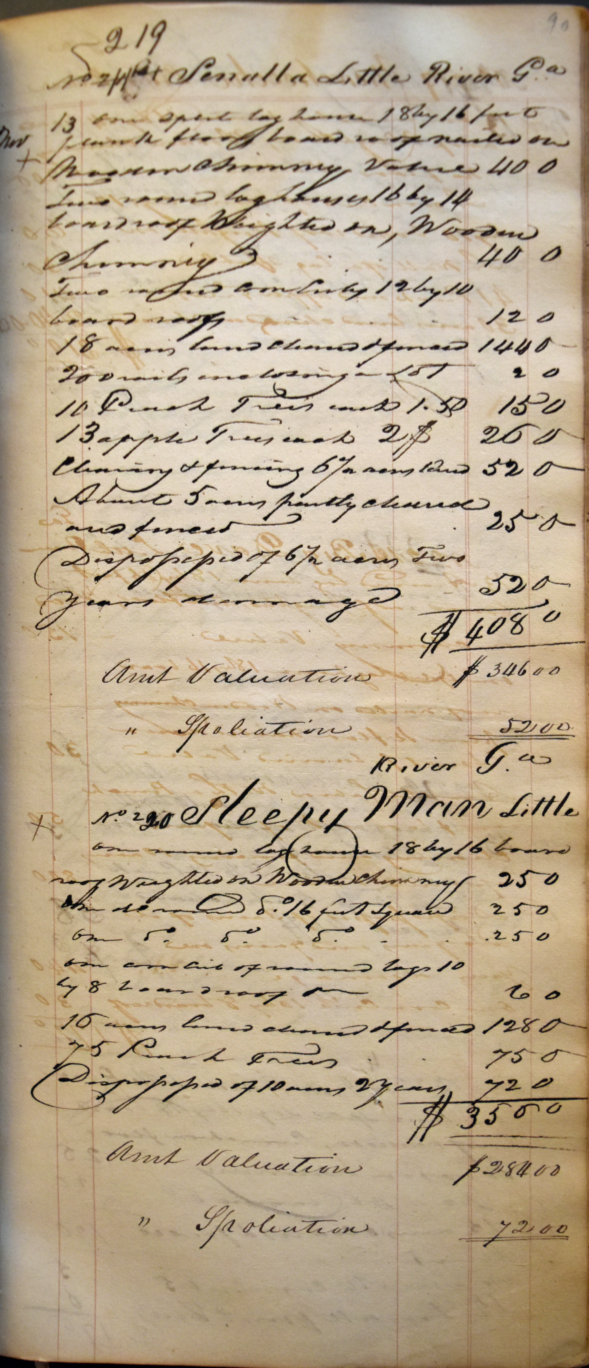 90
219
Senulla Little River Ga
13 one split log house 18 by 16 feet
plank floor board roof nailed on
Wooden Chimney Value 40 0
Two round log houses 16 by 14
board roof Weighted on, Wooden
Chimney 40 0
Two round Corn Cribs 12 by 10
board roofs 12 0
18 acres land cleared & fenced 144 0
200 rails inclosing a Lot 2 0
10 Peach Trees each 1.50 15 0
13 apple Trees each 2$ 26 0
Clearing & fencing 6 1/2 acres land 52 0
About 5 acres partly cleared
and fenced 25 0
Dispossessed of 6 1/2 acres Two
years damage 52 0
$ 408 0
Amt Valuation $ 346 00
" Spoliation 52 00
River Ga
No 220 Sleepy Man Little
one round log house 18 by 16 board
roof Weighted on Wooden Chimney 25 0
One do round do 16 feet Square 25 0
one do do do 25 0
one corn crib of round logs 10
by 8 board roof on 6 0
16 acres land cleared & fenced 128 0
75 Peach Trees 75 0
Dispossessed of 10 acres 2 years 72 0
$ 356 0
Amt Valuation $ 284 00
" Spoliation 72 00